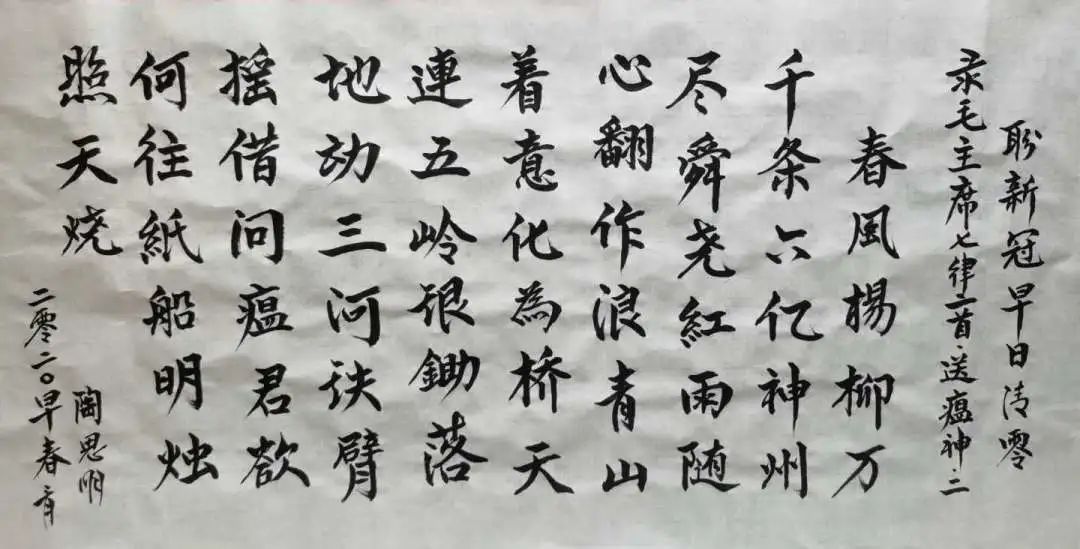 盼新冠早日清零
录毛主席七律二首·送瘟神二
春風楊柳万
千条六亿神州
尽舜尧紅雨随
心翻作浪青山
着意化為桥天
連五岭银鋤落
地动三河铁臂
摇借问瘟君欲
何往紙船明烛
照天烧
陶思明
二零二〇早春